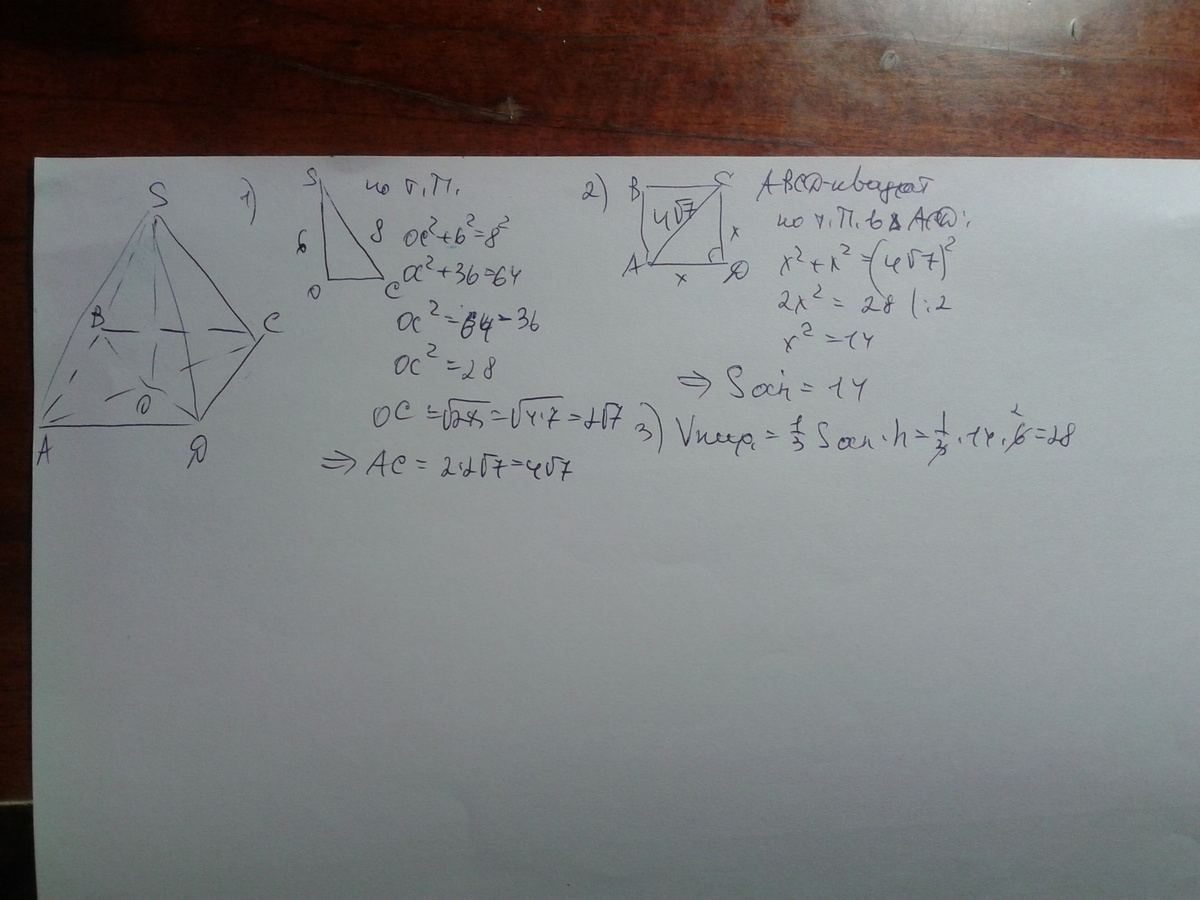 S
B
C
O
A
D
1)
S
6
8
O
C
по т.П.
OC²+6²=8²
OC²+36=64
OC²=64-36
OC²=28
OC=√28=√4·7=2√7
⇒ AC=2·2√7=4√7
2)
B
C
4√7
x
A
x
D
ABCD-квадрат
по т.П. в Δ ACD:
x²+x²=(4√7)²
2x²=28 |:2
x²=14
⇒ Sосн=14
3) Vпир.=1/3 Sосн·h=1/3·14·6 2=28